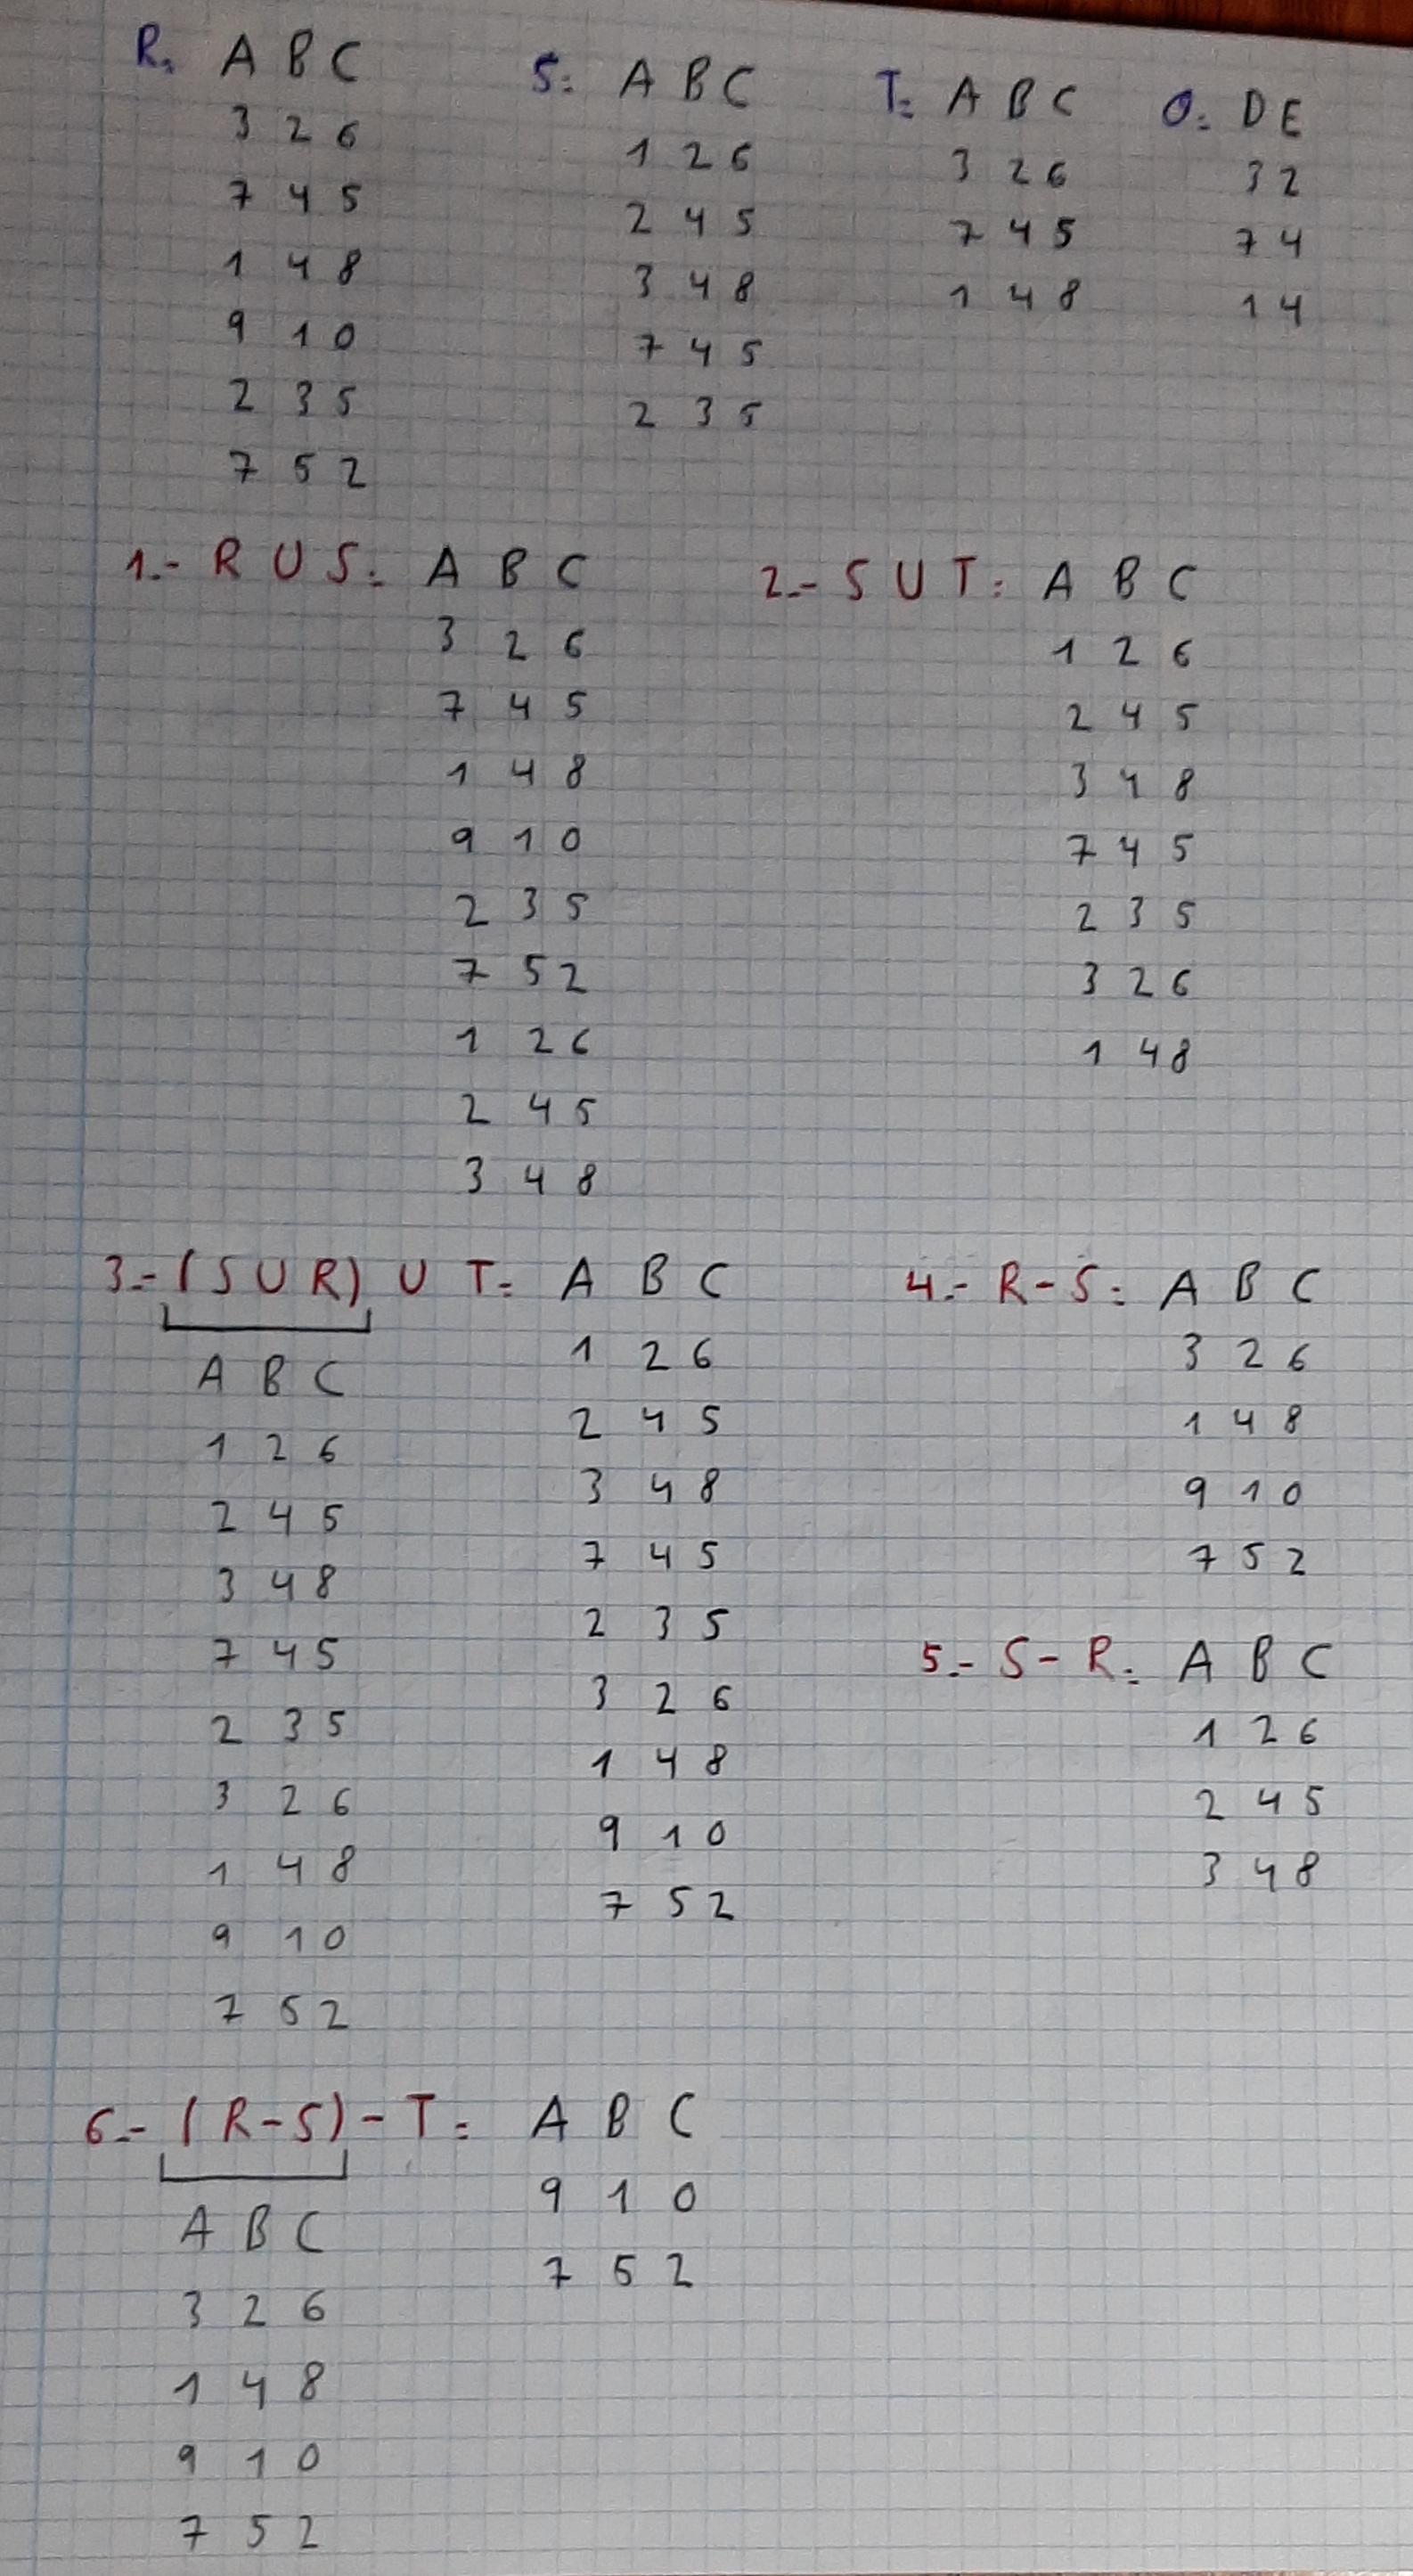 R: A B C
3 2 6
7 4 5
1 4 8
9 1 0
2 3 5
7 5 2
S: A B C
1 2 6
2 4 5
3 4 8
7 4 5
2 3 5
T: A B C
3 2 6
7 4 5
1 4 8
Q: D E
3 2
7 4
1 4
1.- R U S: A B C
3 2 6
7 4 5
1 4 8
9 1 0
2 3 5
7 5 2
1 2 6
2 4 5
3 4 8
2.- S U T: A B C
1 2 6
2 4 5
3 4 8
7 4 5
2 3 5
3 2 6
1 4 8
3.- (S U R) U T= A B C
1 2 6
2 4 5
3 4 8
7 4 5
2 3 5
3 2 6
1 4 8
9 1 0
7 5 2
A B C
1 2 6
2 4 5
3 4 8
7 4 5
2 3 5
3 2 6
1 4 8
9 1 0
7 5 2
4.- R-S: A B C
3 2 6
1 4 8
9 1 0
7 5 2
5.- S-R: A B C
1 2 6
2 4 5
3 4 8
6.- (R-S)-T= A B C
9 1 0
7 5 2
A B C
3 2 6
1 4 8
9 1 0
7 5 2